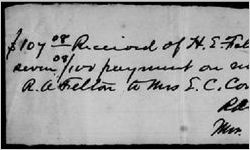 $107 08 Received of H. E. Fel
seven 08/100 payment on
R. A. Felton to Mrs E. C. Co
Mrs.